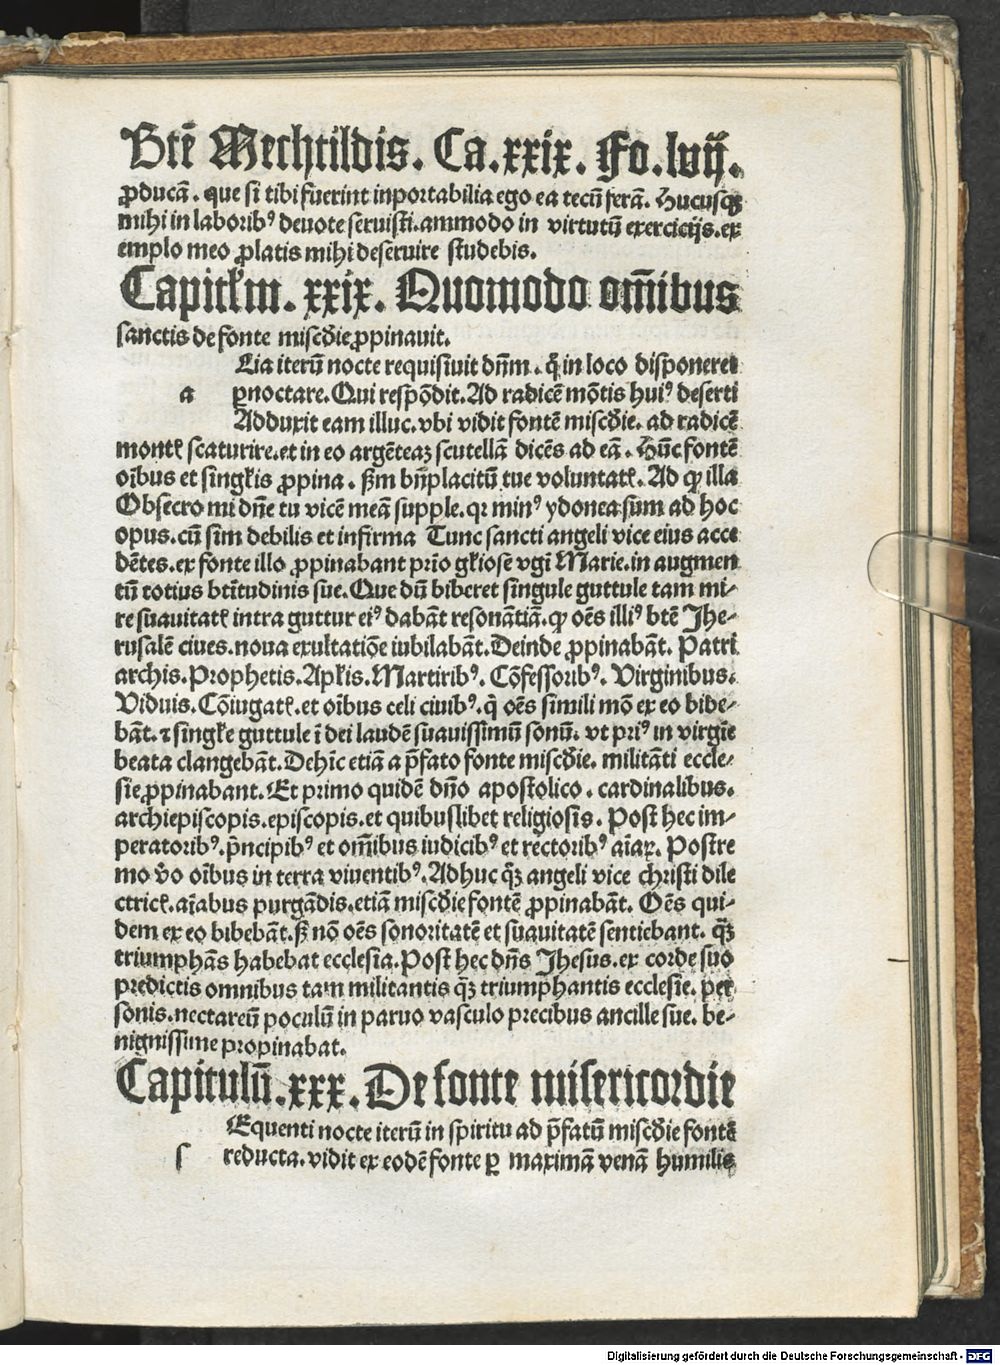 Btē Mechtildis. Ca. xxix. Fo. lvij.
ꝓducā. que si tibi fuerint inportabilia ego ea tecū ferā. Hucusqꝫ
mihi in laboribꝰ deuote seruisti. ammodo in virtutū exercicijs. ex
emplo meo ꝓlatis mihi deseruire studebis.
Capitłm. xxix. Quomodo om̄ibus
sanctis de fonte miscd̄ie ꝓpinauit.
Lia iterū nocte requisiuit dn̄m. q̄ in loco disponeret
a ꝑnoctare. Qui respōdit. Ad radicē mōtis huiꝰ deserti
Adduxit eam illuc. vbi vidit fontē miscd̄ie. ad radicē
montꝭ scaturire. et in eo argēteaꝫ scutellā dicēs ad eā. Hūc fontē
oībus et singłis ꝓpina. sm̄ bn̄placitū tue voluntatꝭ. Ad qꝫ illa
Obsecro mi dn̄e tu vicē meā supple. qꝛ minꝰ ydonea sum ad hoc
opus. cū sim debilis et infirma Tunc sancti angeli vice eius acce
dētes. ex fonte illo ꝓpinabant prīo głiose vgī Marie. in augmen
tū totius btītudinis sue. Que dū biberet singule guttule tam mi-
re suauitatꝭ intra guttur eiꝰ dabāt resonātiā. qꝫ oēs illiꝰ btē Jhe-
rusalē ciues. noua exultatiōe iubilabāt. Deinde ꝓpinabāt. Patri
archis. Prophetis. Apłis. Martiribꝰ. Cōfessoribꝰ. Virginibus.
Viduis. Cōiugatꝭ. et oībus celi ciuibꝰ. q̄ oēs simili mō ex eo bibe-
bāt. ⁊ singłe guttule ī dei laudē suauissimū sonū. vt priꝰ in virgīe
beata clangebāt. Dehīc etiā a p̄fato fonte miscd̄ie. militāti eccle-
sie ꝓpinabant. Et primo quidē dn̄o apostolico. cardinalibus.
archiepiscopis. episcopis. et quibuslibet religiosis. Post hec im-
peratoribꝰ. p̄ncipibꝰ et om̄ibus iudicibꝰ et rectoribꝰ aīaꝝ. Postre
mo v̄o oībus in terra viuentibꝰ. Adhuc qꝫ angeli vice christi dile
ctricꝭ. aīabus purgādis. etiā miscd̄ie fontē ꝓpinabāt. Oēs qui-
dem ex eo bibebāt. sꝫ nō oēs sonoritatē et suauitatē sentiebant. qꝫ
triumphās habebat ecclesia. Post hec dn̄s Jhesus. ex corde suo
predictis omnibus tam militantis qꝫ triumphantis ecclesie. per
sonis. nectareū poculū in paruo vasculo precibus ancille sue. be-
nignissime propinabat.
Capitulū. xxx. De fonte misericordie
Equenti nocte iterū in spiritu ad p̄fatū miscd̄ie fontē
s reducta. vidit ex eodē fonte ꝑ maximā venā humilis
Digitalisierung gefördert durch die Deutsche Forschungsgemeinschaft - DFG